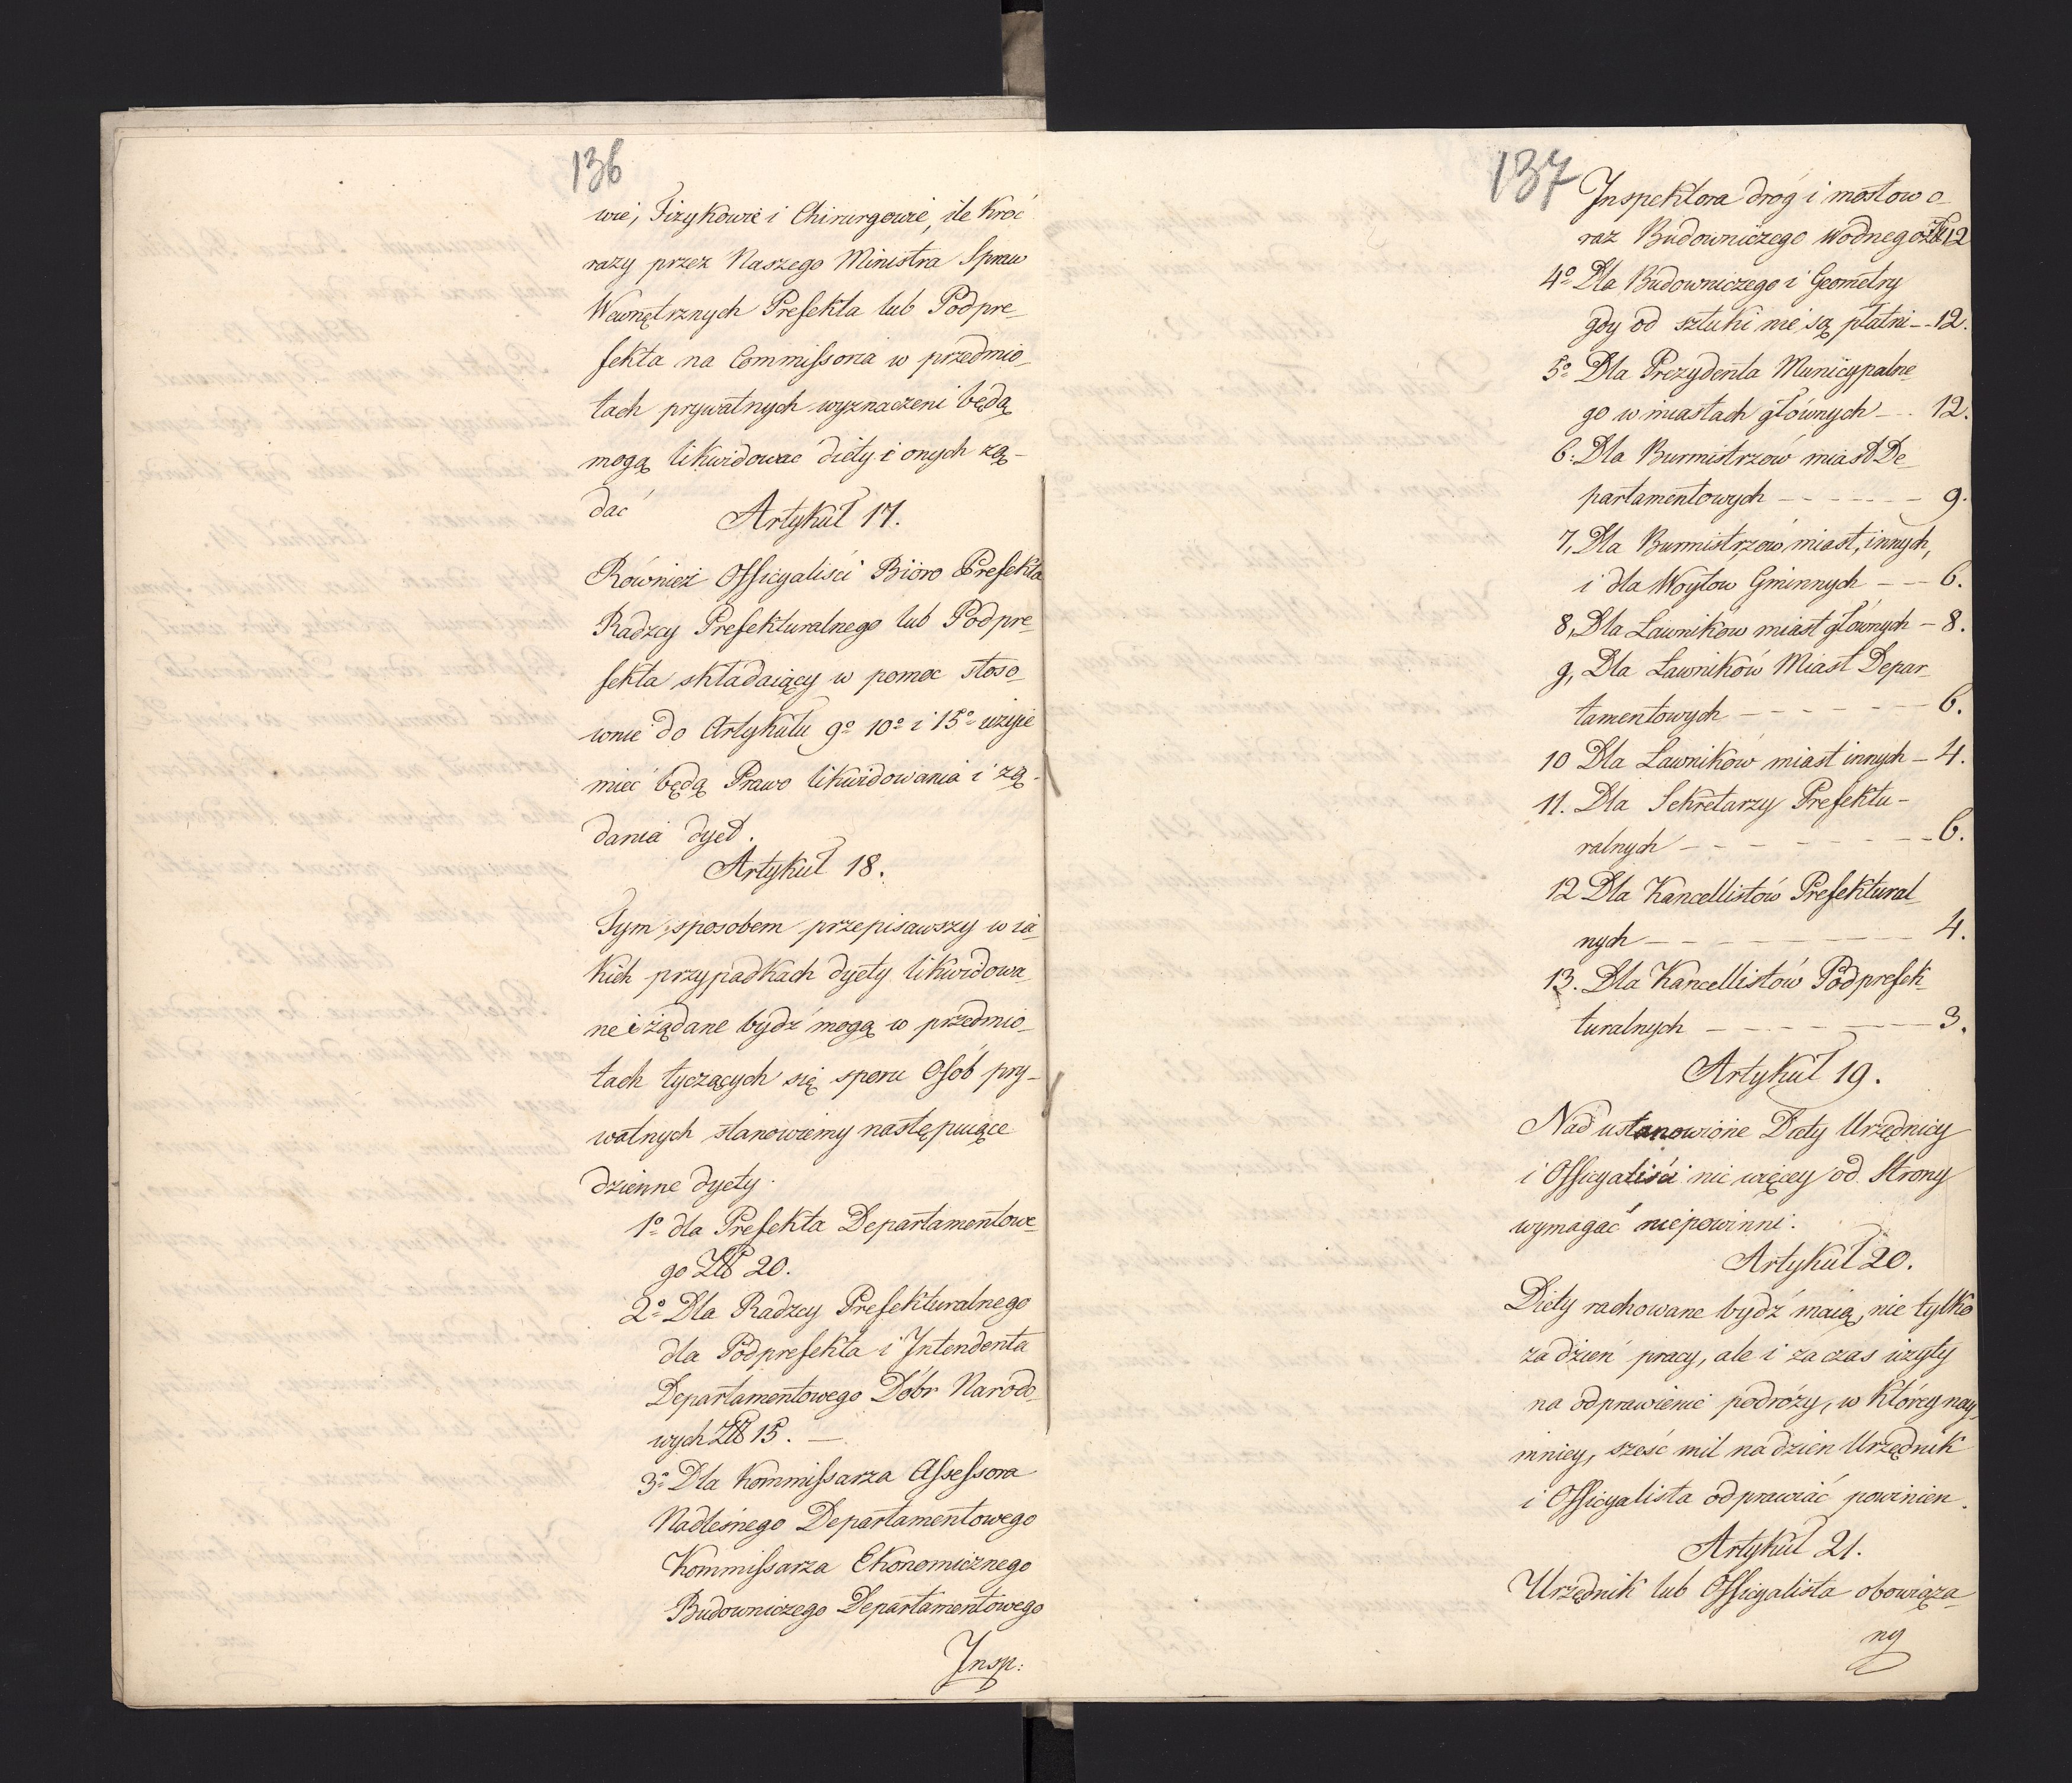 136
wie, Fizykowie i Chirurgowie, ile kroć
razy przez Naszego Ministra Spraw
Wewnętrznych Prefekta lub Podpre-
fekta na Commissoria w przedmio-
tach prywatnych wyznaczeni będą
mogą likwidować diety i onych żą-
dać
Artykuł 17.
Również Officyaliści Bióro Prefekta
Radzcy Prefekturalnego lub Podpre-
fekta składaiący w pomoc stoso-
wnie do Artykułu 9º 10º i 15º użyci
mieć będą Prawo likwidowania i żą-
dania dyet.
Artykuł 18.
Tym sposobem przepisawszy w ia-
kich przypadkach dyety likwidowa-
ne i żądane bydź mogą w przedmio-
tach tyczących się sporu Osób pry-
watnych stanowiemy następuiące
dzienne dyety.
1º dla Prefekta Departamentowe-
go Złł 20.
2º Dla Radzcy Prefekturalnego
dla Podprefekta i Intendenta
Departamentowego Dóbr Narodo-
wych Złł 15. —
3º Dla Kommissarza Assessora
Nadleśnego Departamentowego
Kommissarza Ekonomicznego
Budowniczego Departamentowego
Insp:
137
Inspektora dróg i mostow o-
raz Budowniczego Wodnego Zł 12
4º Dla Budowniczego i Geometry
gdy od sztuki nie są płatni - - 12.
5º Dla Prezydenta Municypalne-
go w miastach głównych - - . 12.
6. Dla Burmistrzów miast De-
partamentowych - - - - - - 9.
7, Dla Burmistrzów miast, innych,
i dla Woytow Gminnych - - - 6.
8, Dla Ławnikow miast głównych - 8.
9, Dla Ławników Miast Depar-
tamentowych - - - - - - 6.
10 Dla Ławników miast innych - 4.
11. Dla Sekretarzy Prefektu-
ralnych - - - - - - - - 6.
12 Dla Kancellistów Prefektural-
nych - - - - - - - - - 4.
13. Dla Kancellistów Podprefek-
turalnych - - - - - - - 3.
Artykuł 19.
Nad ustanowione Diety Urzędnicy
i Officyaliści nic więcey od Strony
wymagać niepowinni.
Artykuł 20.
Diety rachowane bydź maią, nie tylko
za dzień pracy, ale i za czas użyty
na odprawienie podróży, w którey nay-
mniey, sześć mil na dzien Urzędnik
i Officyalista odprawiać powinien.
Artykuł 21.
Urzędnik lub Officyalista obowiąza-
ny